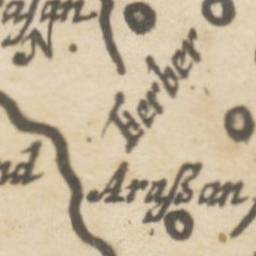 aſan
N.
Ferber
nd
Araſsan